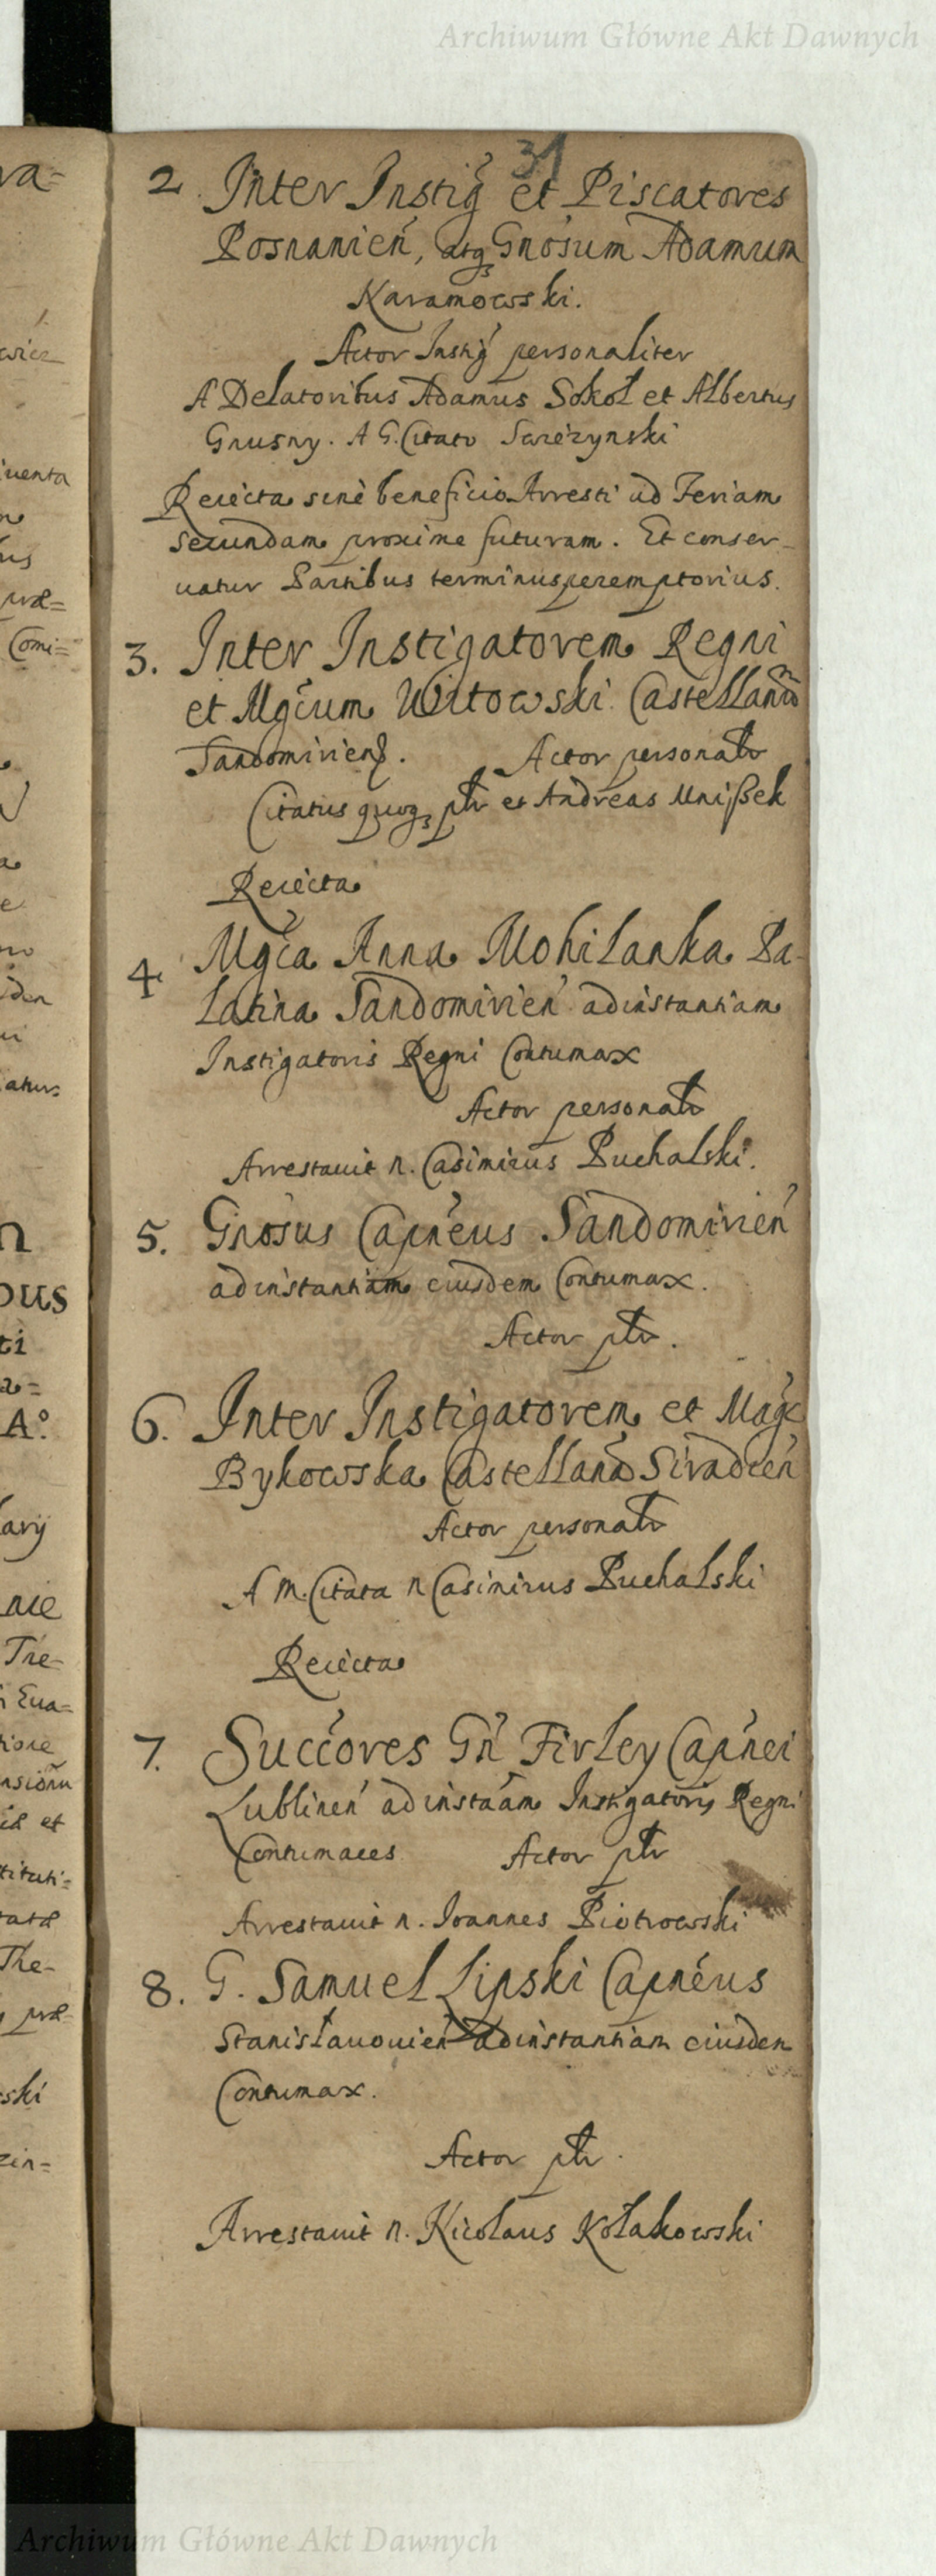 Archiwum Główne Akt Dawnych
31
2 Inter Instig et Piscatores
Posnanien, atq Gnosum Adamum
Karamowski.
Actor Instig personaliter
A Delatoribus Adamus Sokoł et Albertus
Gnusny. A G. Citato
Reiecta sine beneficio Arresti ad Feriam
secundam proxime futuram. Et conser-
uatur Partibus terminus peremptorius.
3. Inter Instigatorem Regni
et Mgcum Witowski Castellano
Sandomirien. Actor personalr
Citatus quoq plr et Andreas Mnißek
Reiecta
4 Mgca Anna Mohilanka Pa-
latina Sandomirien ad instantiam
Instigatoris Regni Contumax
Actor personalr
Arrestauit n. Casimirus Puchalski.
5. Gnosus Capneus Sandomirien
ad instantiam eiusdem Contumax.
Actor plr.
6. Inter Instigatorem et Magc
Bykowska Castellana Siradien
Actor personalr
A M. Citata n Casimirus Puchalski
Reiecta
7. Succores Gn Firley Capnei
Lublinen ad instaam Instigatoris Regni
Contumaces Actor plr
Arrestauit n. Ioannes Piotrowski
8. G. Samuel Lipski Capneus
Stanisławouien ad instantiam eiusdem
Contumax.
Actor plr.
Arrestauit n. Nicolaus Kołakowski
Archiwum Główne Akt Dawnych